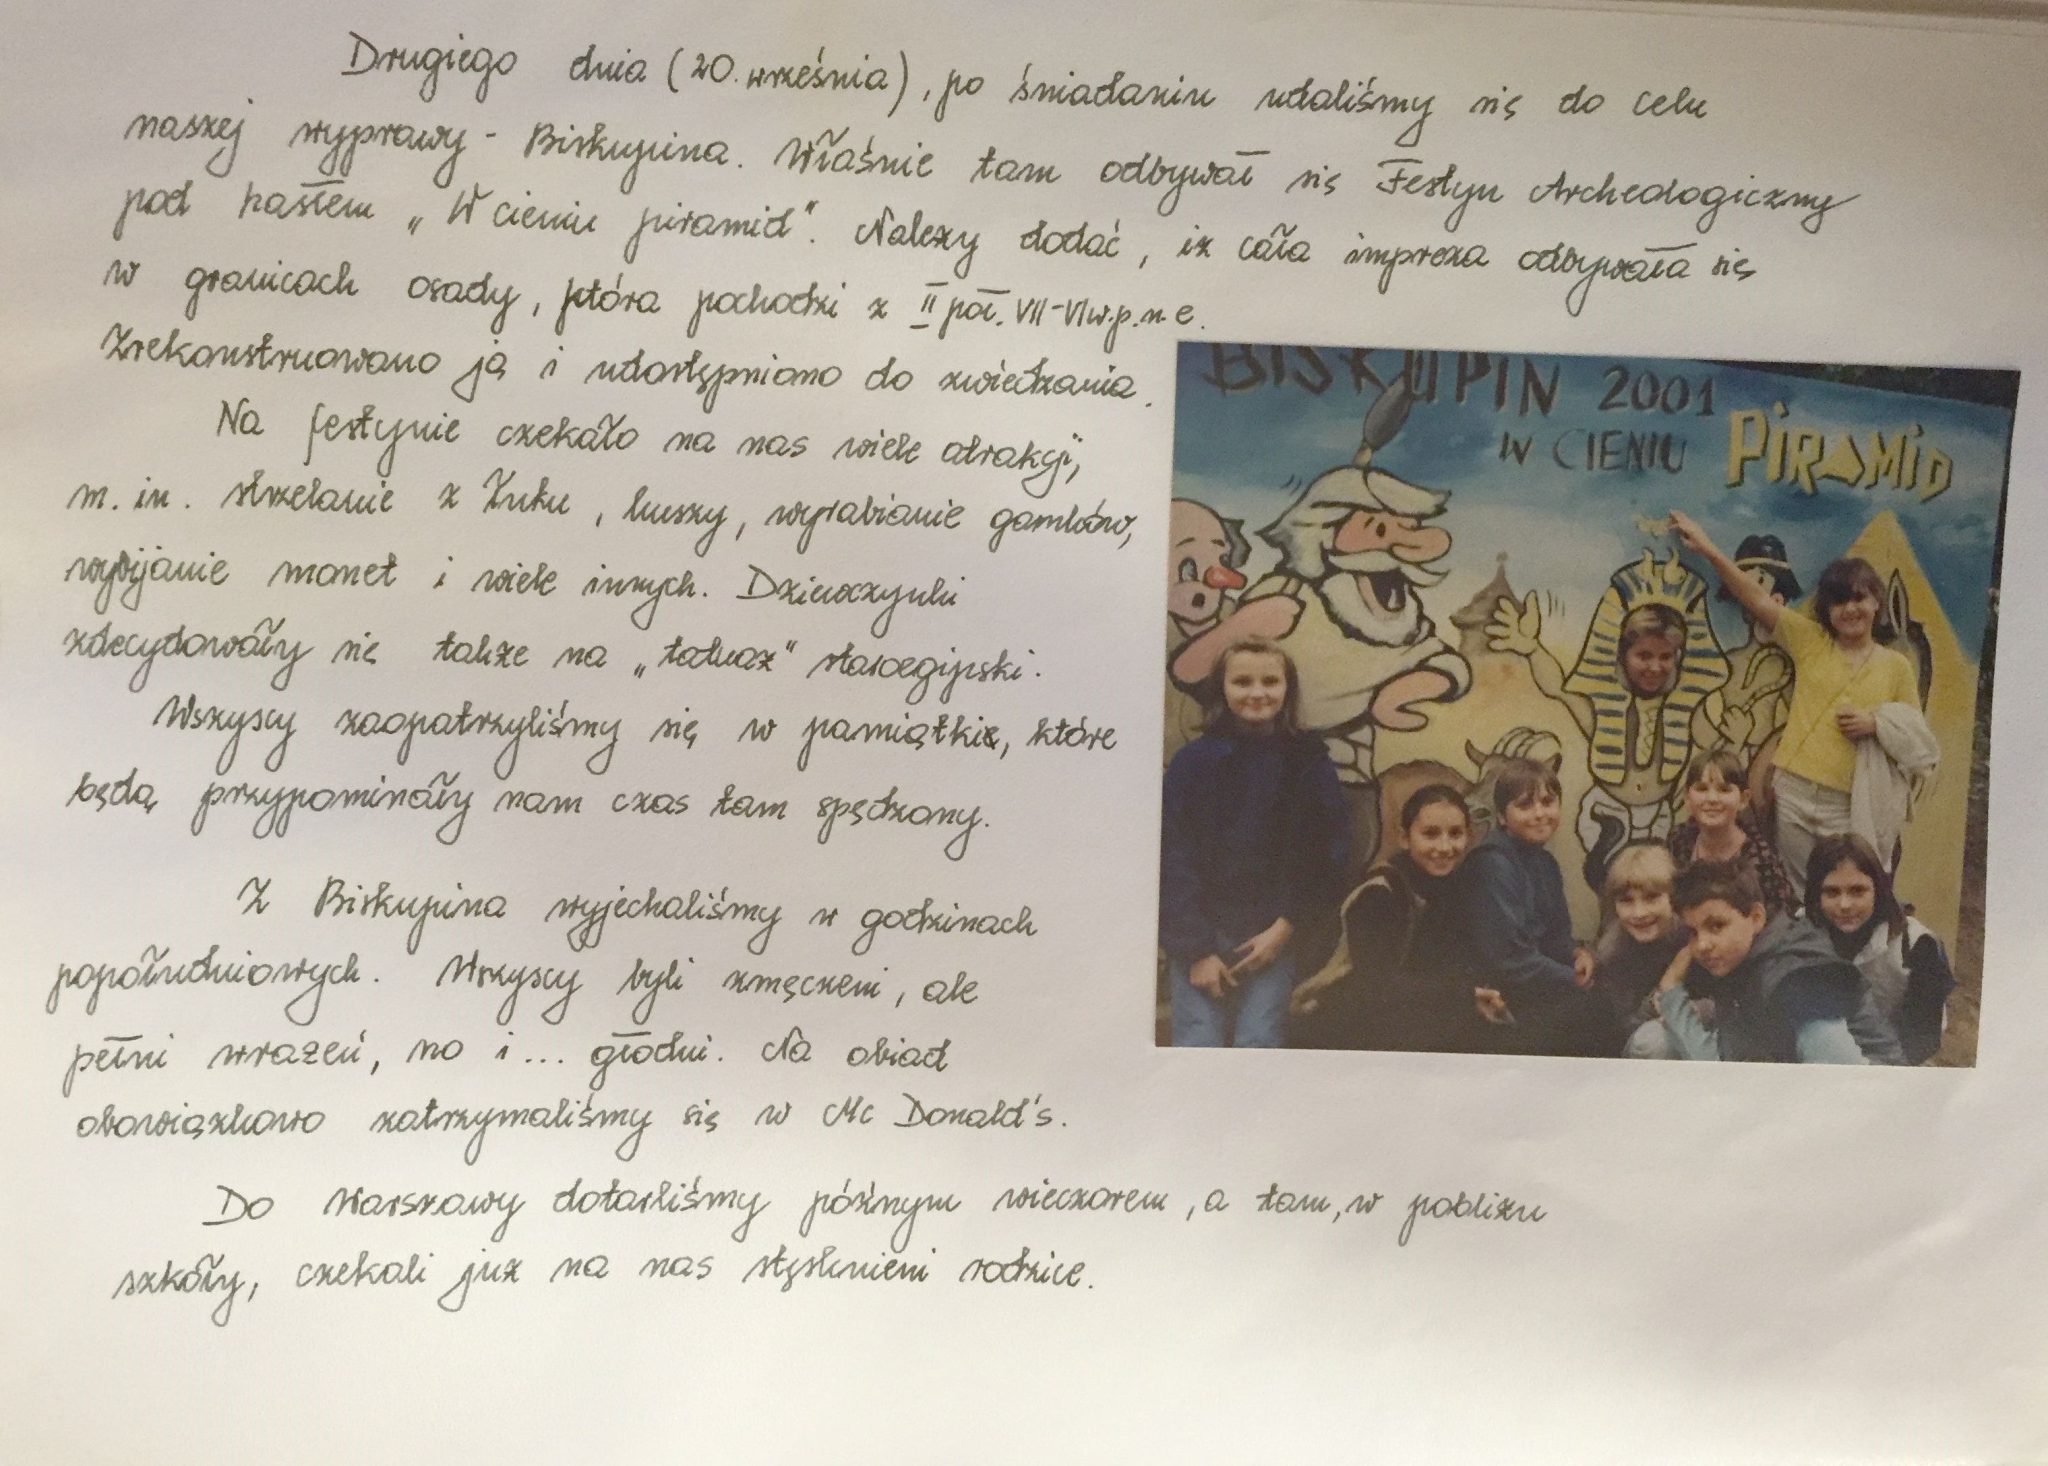 Drugiego dnia (20. września), po śniadaniu udaliśmy się do celu
naszej wyprawy - Biskupina. Właśnie tam odbywał się Festyn Archeologiczny
pod hasłem „W cieniu piramid". Należy dodać, iż cała impreza odbywała się
w granicach osady, która pochodzi z II poł. VII-VI w. p. n. e.
Zrekonstruowano ją i udostępniono do zwiedzania.
Na festynie czekało na nas wiele atrakcji,
m. in. strzelanie z łuku, kuszy, wyrabianie garnków,
wybijanie monet i wiele innych. Dziewczynki
zdecydowały się także na „tatuaż" staroegipski.
Wszyscy zaopatrzyliśmy się w pamiątki, które
będą przypominały nam czas tam spędzony.
Z Biskupina wyjechaliśmy w godzinach
popołudniowych. Wszyscy byli zmęczeni, ale
pełni wrażeń, no i... głodni. Na obiad
obowiązkowo zatrzymaliśmy się w Mc Donald's.
Do Warszawy dotarliśmy późnym wieczorem, a tam, w pobliżu
szkoły, czekali już na nas stęsknieni rodzice.
BISKUPIN 2001
W CIENIU PIRAMID